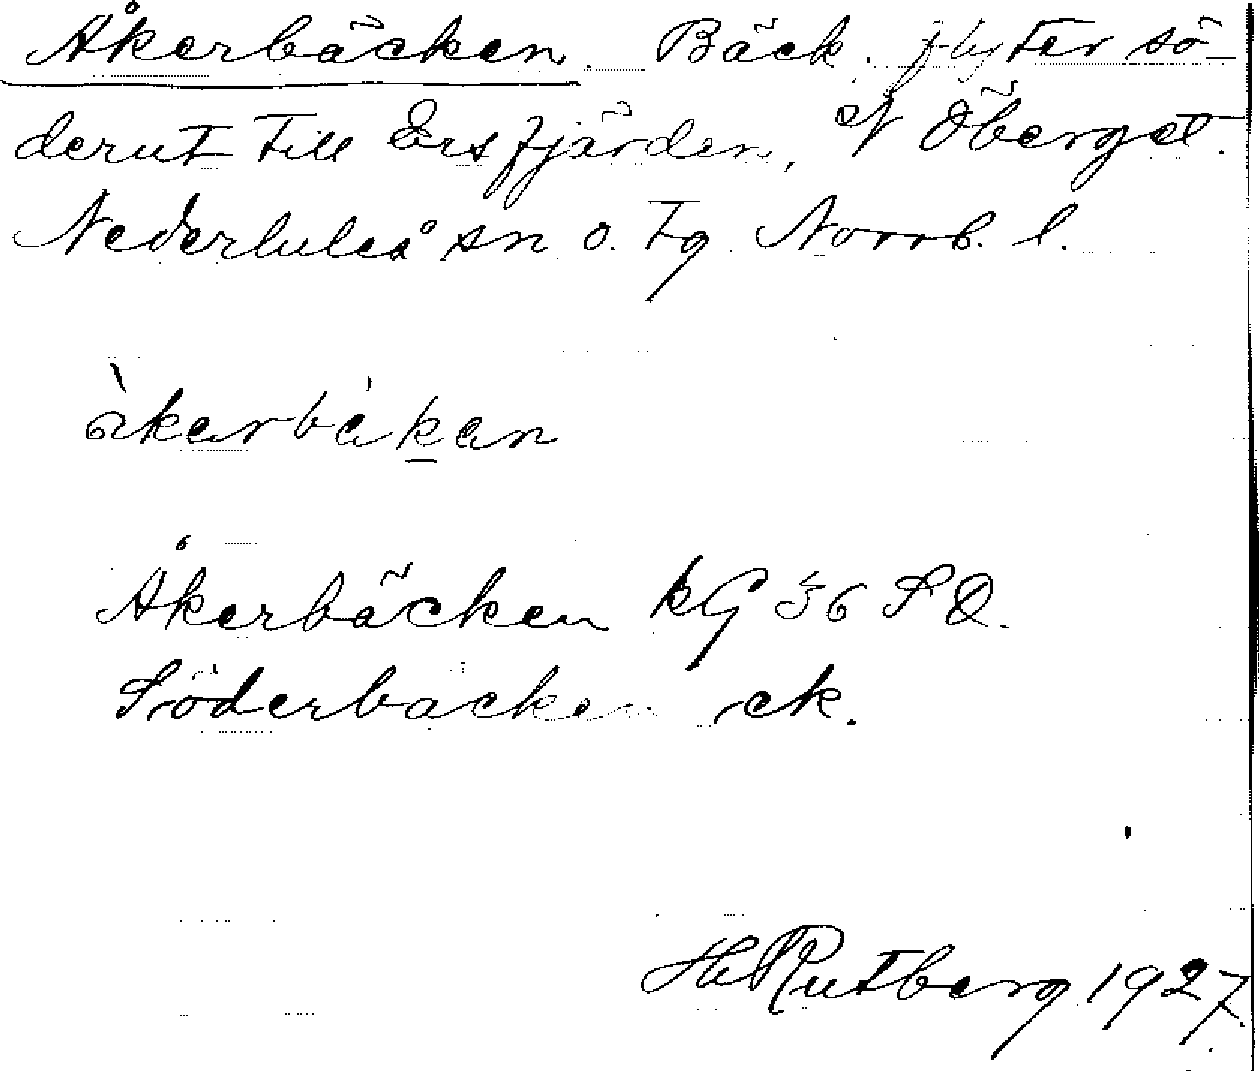 Åkerbäcken. Bäck, flyter sö-
derut till Ersfjärden, N Öberget.
Nederluleå sn o. tg Norrb. l.
åkarbäkan
Åkerbäcken kG 36 S Ö.
Söderbäcken ek.
H Rutberg 1927.